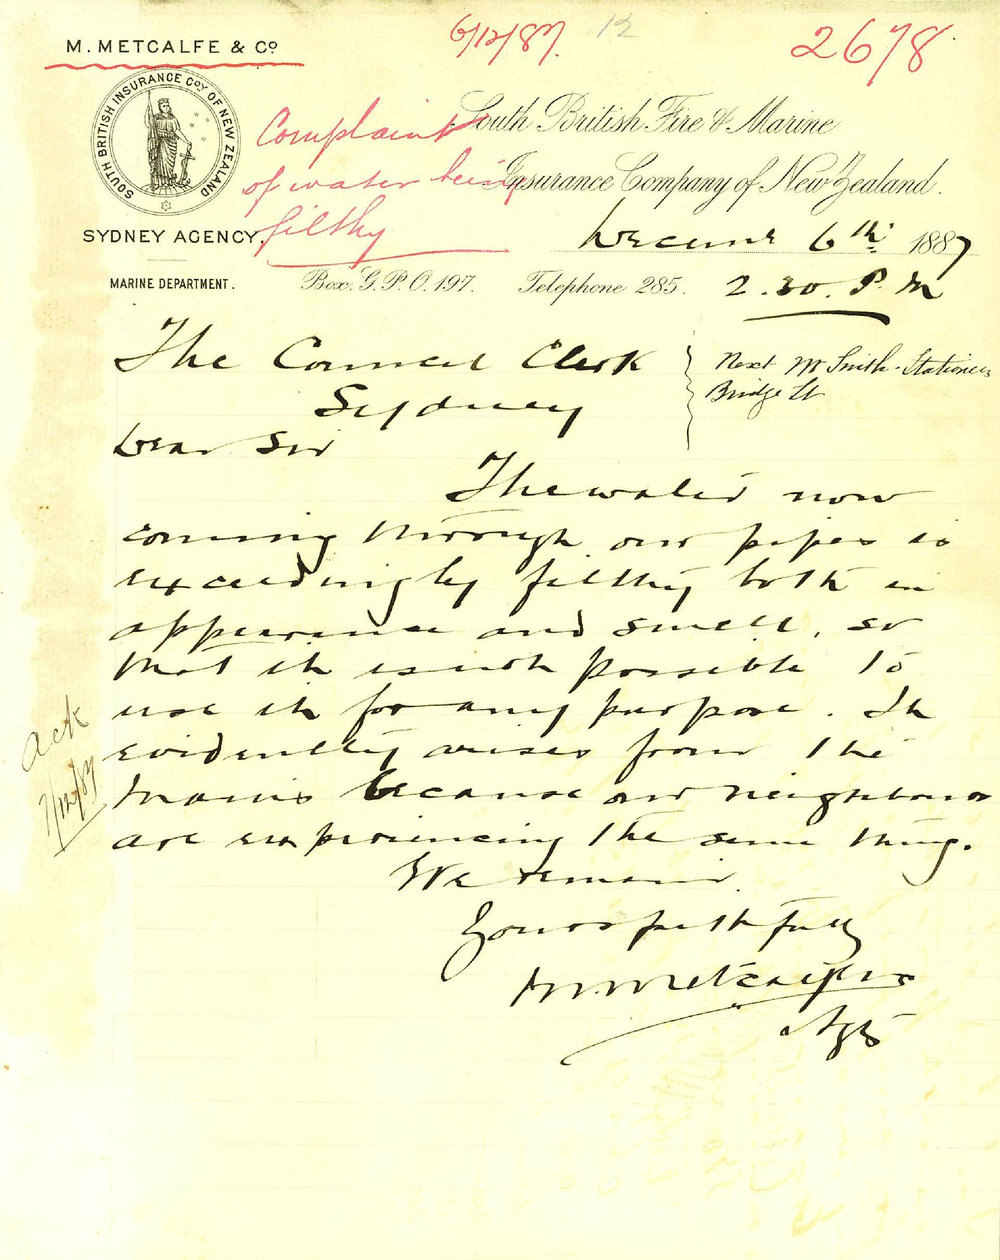 M. METCALFE & Co
6/12/87.
12
2678
SOUTH BRITISH INSURANCE CoY OF NEW ZEALAND
Complaint
of water being
filthy
South British Fire & Marine
Insurance Company of New Zealand.
SYDNEY AGENCY.
December 6th 1887
MARINE DEPARTMENT.
Box. G.P.O. 197.
Telephone 285.
2.30. P.M
The Council Clerk
Sydney
Next Mr Smith - Stationers
Bridge St
Dear Sir
The water now
coming through our pipes is
exceedingly filthy both in
appearance and smell, so
that it is not possible to
use it for any purpose. It
evidently arises from the
mains because our neighbours
are experiencing the same thing.
We remain
Yours faithfully
M. Metcalfe & Co
Agts
Ack
7/12/87